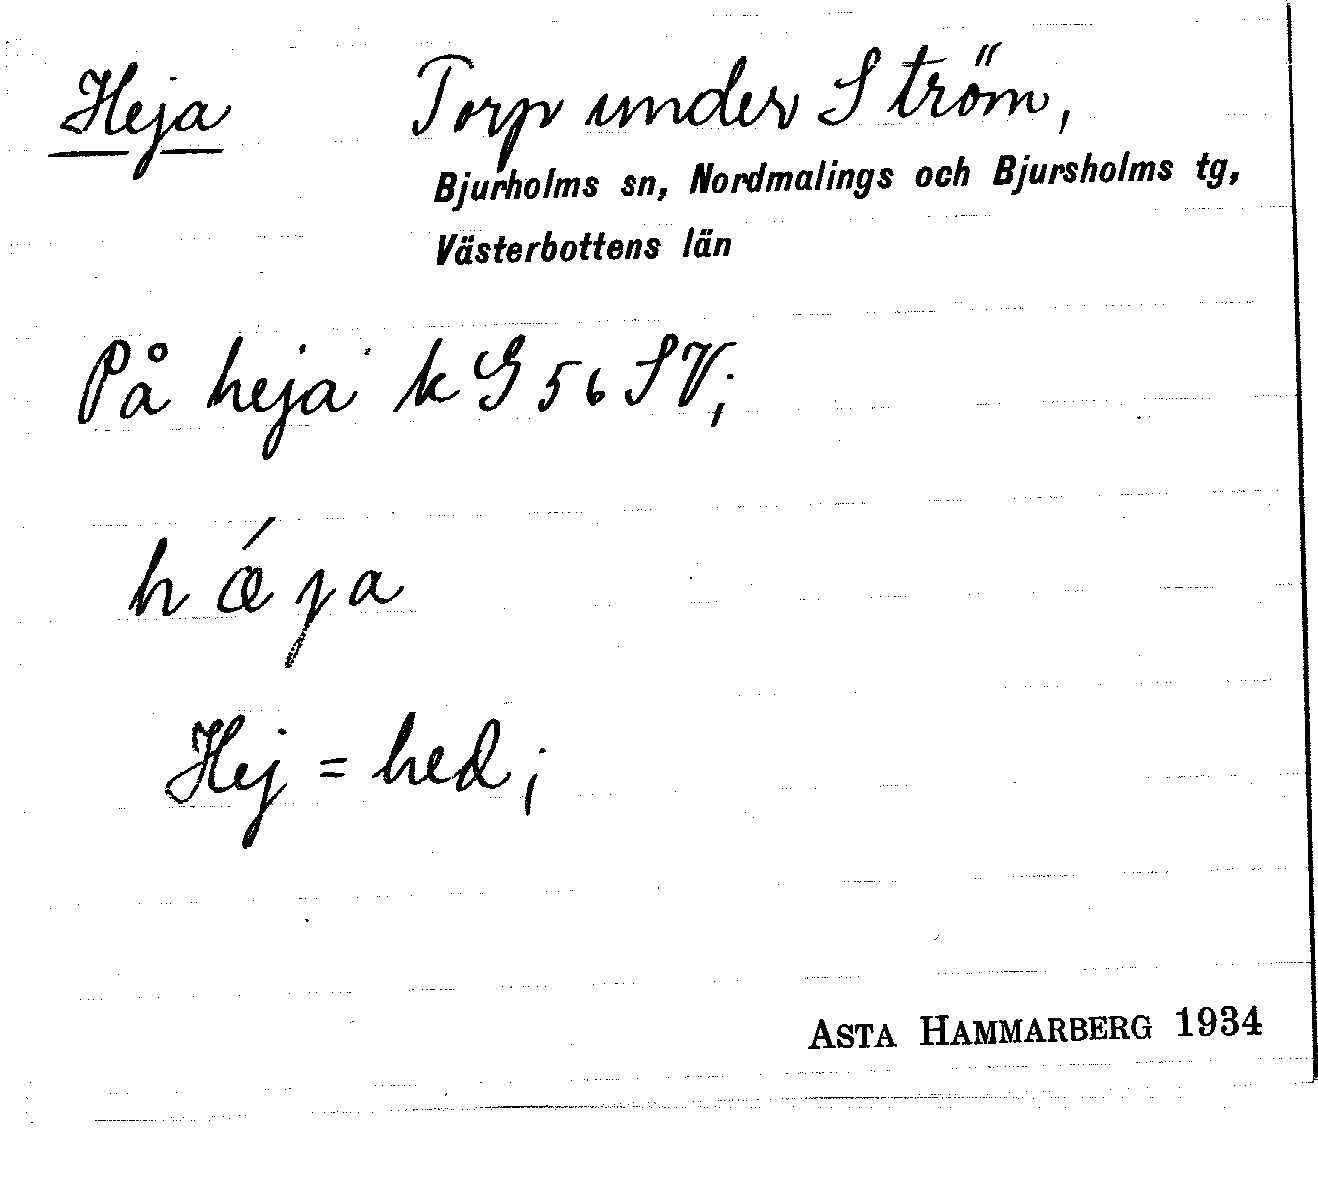 Heja Torp under Ström,
Bjurholms sn, Nordmalings och Bjursholms tg,
Västerbottens län
På heja k G 56 SV;
h ǽ j a
Hej = hed;
ASTA HAMMARBERG 1934